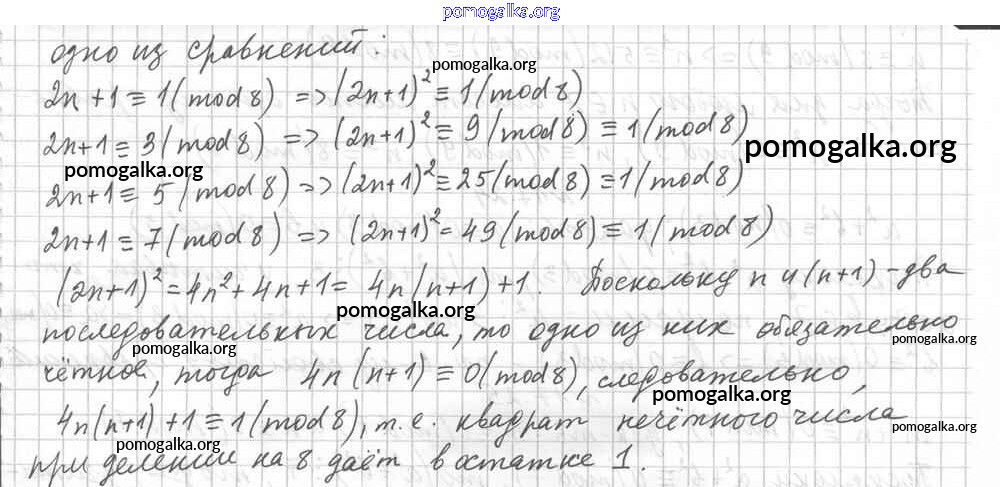 pomogalka.org
одно из сравнений:
pomogalka.org
2n+1≡1(mod 8) => (2n+1)²≡1(mod 8)
2n+1≡3(mod 8) => (2n+1)²≡9(mod 8)≡1(mod 8)
pomogalka.org
pomogalka.org
2n+1≡5(mod 8) => (2n+1)²≡25(mod 8)≡1(mod 8)
2n+1≡7(mod 8) => (2n+1)²=49(mod 8)≡1(mod 8)
(2n+1)²=4n²+4n+1=4n(n+1)+1. Поскольку n и (n+1)-два
pomogalka.org
последовательных числа, то одно из них обязательно
pomogalka.org
pomogalka.org
чётное, тогда 4n(n+1)≡0(mod 8), следовательно,
pomogalka.org
4n(n+1)+1≡1(mod 8), т.е. квадрат нечётного числа
pomogalka.org
pomogalka.org
при делении на 8 даёт в остатке 1.